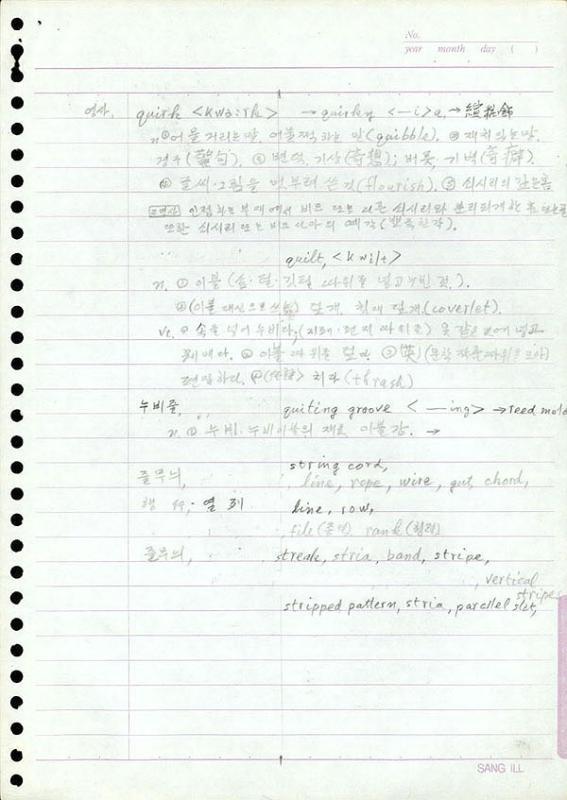 No.
year month day ( )
quirk <kwə:rk> → quirky <—i> a. →
n ① 어물거리는 말, 어물쩍하는 말 (quibble). ② 재치 있는 말.
경구 (警句). ③ 변덕, 기상 (奇想); 버릇, 기벽 (奇癖).
④ 글씨·그림을 멋부려 쓴 것 (flourish). ⑤ 쇠시리의 깊은 홈
또는 비드
quilt, <kwilt>
n. ① 이불 (솜·털·깃털 따위를 넣고 누빈 것).
② (이불 대신으로 쓰는) 덮개, 침대 덮개. (coverlet).
vt. ① 속을 넣어 누비다,
② 이불 따위를 덮다. ③ (英) (문학 작품 따위를 모아)
편집하다. ④ 치다 (thrash)
누비줄, quiting groove <—ing> → reed mold
n. ① 누비·누비이불의 재료 이불감. →
줄무늬, string cord,
line, rope, wire, gut, chord,
행 行; 열 列 line, row,
file (종렬) rank (횡렬)
줄무늬, streak, stria, band, stripe,
, vertical
stripe,
stripped pattern, stria, parcllel slit,
SANG ILL